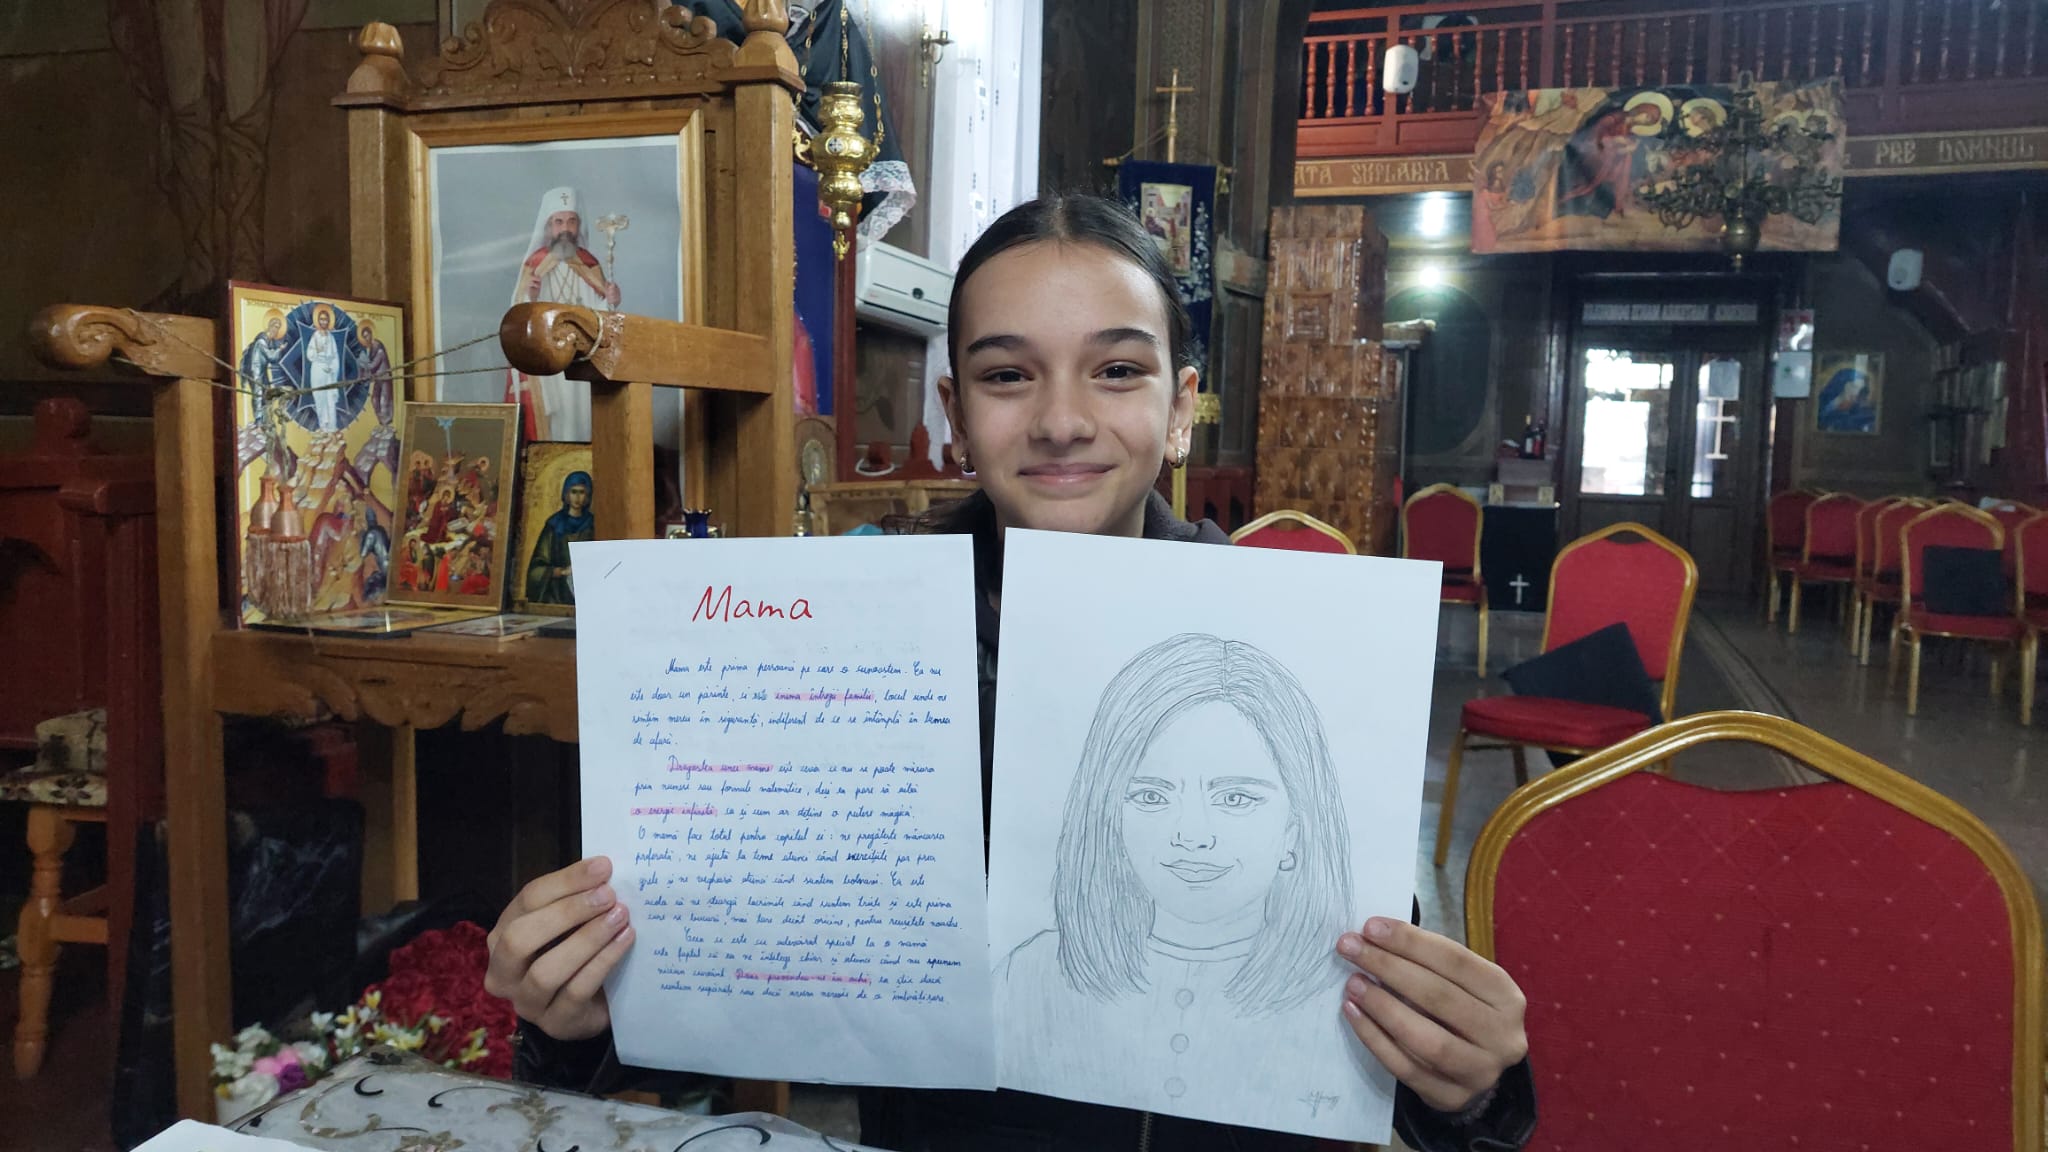 ATA SUFLAREA S
PRE DOMNUL
Mama
Mama este prima persoană pe care o cunoaștem. Ea nu
este doar un părinte, ci este inima întregii familii, locul unde ne
simțim mereu în siguranță, indiferent de ce se întâmplă în lumea
de afară.
Dragostea unei mame este ceva ce nu se poate măsura
prin numere sau formule matematice, deși ea pare să aibă
o energie infinită, ca și cum ar deține o putere magică.
O mamă face totul pentru copilul ei: ne pregătește mâncarea
preferată, ne ajută la teme atunci când exercițiile par prea
grele și ne veghează atunci când suntem bolnavi. Ea este
acolo să ne șteargă lacrimile când suntem triști și este prima
care se bucură, mai tare decât oricine, pentru reușitele noastre.
Ceea ce este cu adevărat special la o mamă
este faptul că ea ne înțelege chiar și atunci când nu spunem
niciun cuvânt. Doar privindu-ne în ochi, ea știe dacă
suntem supărați sau dacă avem nevoie de o îmbrățișare.